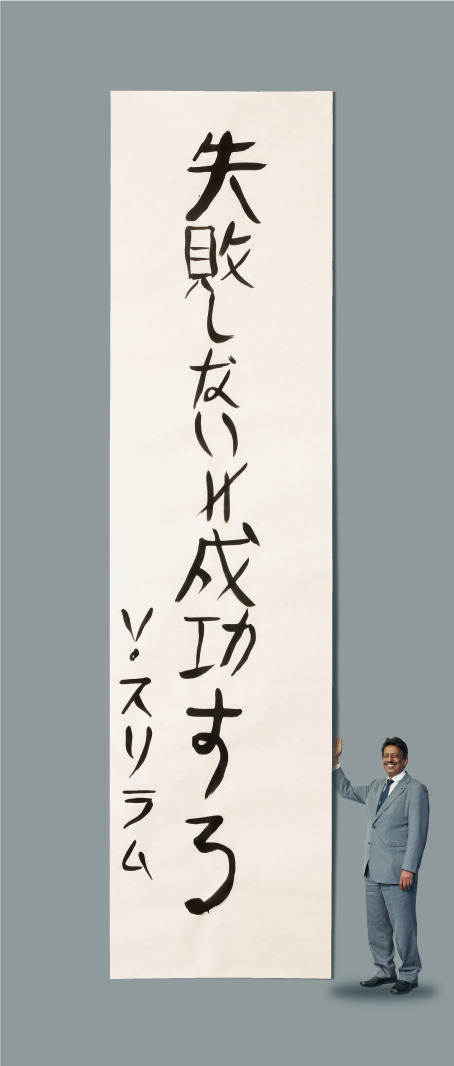 失敗しないけ成功する
V.スリラム